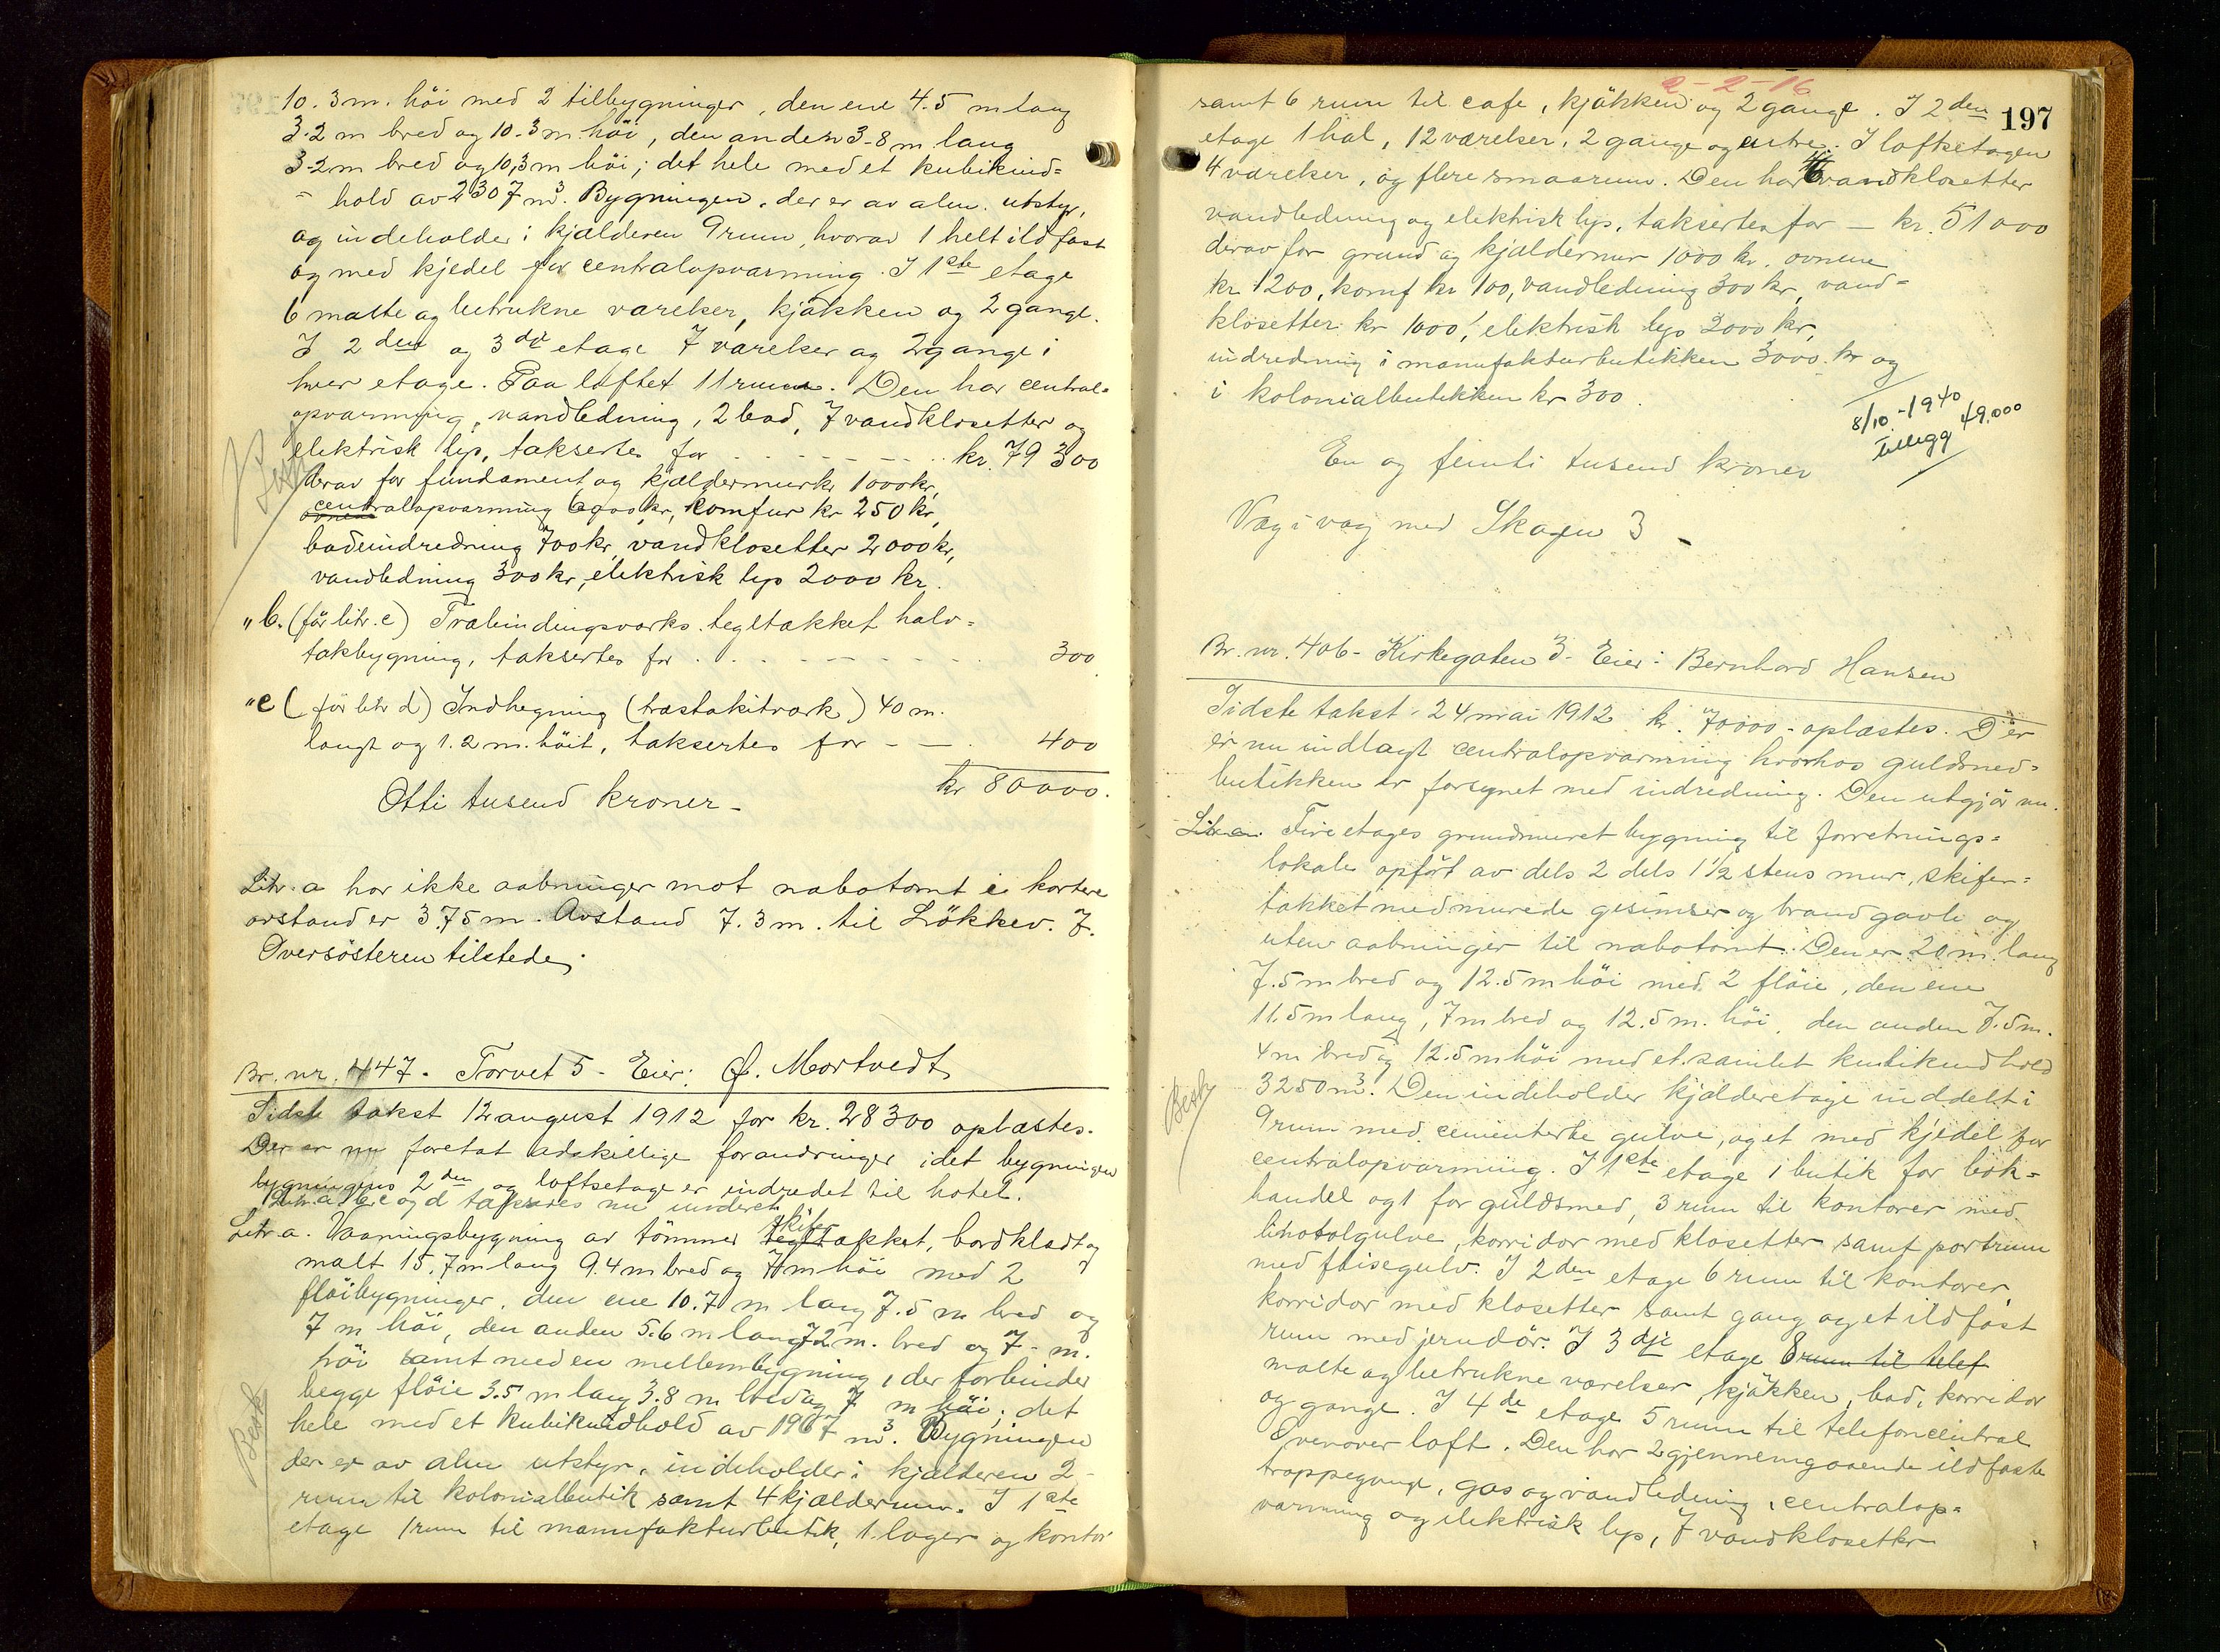 10.3 m. höi med 2 tilbygninger, den ene 4.5 m lang
3.2 m bred og 10.3 m höi, den anden 3.8 m lang
3.2 m bred og 10,3 m höi; det hele med et kubikind=
= hold av 2307 m³. Bygningen, der er av alm. utstyr,
og indeholder i kjælderen 9 rum, hvorav 1 helt ildfast
og med kjedel for centralopvarming. I 1ste etage
6 malte og betrukne værelser, kjökken og 2 gange.
I 2den og 3die etage 7 værelser og 2 gange i
hver etage. Paa loftet 11 rum. Den har central=
opvarming, vandledning, 2 bad, 7 vandklosetter og
elektrisk lys, takseres for . . . . kr. 79 300
derav for fundament og kjældermur kr 1000 kr,
ovnene centralopvarming 6000 kr, komfur kr 250 kr,
badeindredning 700 kr, vandklosetter 2000 kr,
vandledning 300 kr, elektrisk lys 2000 kr.
" b. (för litr. c) Træbindingsværks tegltækket halv=
takbygning, takseres for . . . . 300
" c (för litr d) Indhegning (træstakitværk) 40 m.
langt og 1.2 m. höit, takseres for - - . 400
kr 80000.
Otti tusend kroner -
Litr. a har ikke aabninger mot nabotomt i kortere
avstand er 3.75 m. Avstand 7.3 m. til Lökkev. 7.
Oversösteren tilstede.
Br. nr. 447. Torvet 5 - Eier: Ø. Mortvedt
Sidste takst 12 august 1912 for kr. 28300 oplæstes.
Der er nu foretat adskillige forandringer idet bygningen
bygningens 2den og loftsetage er indredet til hotel.
Litr. a b c og d takseres nu underet
Litr a. Vaaningsbygning av tömmer tegl skifertækket, bordklædt og
malt 15.7 m lang 9.4 m bred og 7 m höi med 2
flöibygninger, den ene 10.7 m lang 7.5 m bred og
7 m höi, den anden 5.6 m lang 7.2 m. bred og 7 - m.
höi samt med en mellembygning, der forbinder
begge flöie 3.5 m lang 3.8 m bred og 7 m höi; det
hele med et kubikindhold av 1967 m³. Bygningen
der er av alm utstyr, indeholder i kjælderen 2 -
rum til kolonialbutik samt 4 kjælderrum. I 1ste
etage 1 rum til manufakturbutik, 1 lager og kontor
Besk
Besk
2-2-16
197
samt 6 rum til cafe, kjökken og 2 gange. I 2den
etage 1 hal, 12 værelser, 2 gange og entre. I loftsetagen
4 værelser, og flere smaarum. Den har 6 vandklosetter
vandledning og elektrisk lys, takseres for - kr. 51000
derav for grund og kjældermur 1000 kr. ovnene
kr 1200, komf kr 100, vandledning 300 kr, vand=
klosetter kr 1000, elektrisk lys 2000 kr,
indredning i manufakturbutikken 3000 kr og
i kolonialbutikken kr 300.
8/10.-1940
tillegg 49.000
En og femti tusend kroner
Væg i væg med Skagen 3 -
Br. nr. 406 - Kirkegaten 3 - Eier: Bernhard Hansen
Sidste takst 24 mai 1912 kr. 70000 - oplæstes. Der
er nu indlagt centralopvarming hvorhos guldsmed=
butikken er forsynet med indredning. Den utgjör nu.
Litr a. Fire etages grundmuret bygning til forretnings=
lokale opfört av dels 2 dels 1 1/2 stens mur, skifer=
tækket med murede gesimser og brandgavle og
uten aabninger til nabotomt. Den er 20 m. lang
7.5 m bred og 12.5 m höi med 2 flöie, den ene
11.5 m lang, 7 m bred og 12.5 m. höi, den anden 7.5 m.
4 m bred og 12.5 m höi med et samlet kubikindhold
3250 m³. Den indeholder kjælderetage inddelt i
9 rum med cementerte gulve, og et med kjedel for
centralopvarming. I 1ste etage 1 butik for bok=
handel og 1 for guldsmed, 3 rum til kontorer med
linotolgulve, korridor med klosetter samt portrum
med flisegulv. I 2den etage 6 rum til kontorer,
korridor med klosetter samt gang og et ildfast
rum med jerndör. I 3dje etage 8 rum til telef
malte og betrukne værelser, kjökken, bad, korridor
og gange. I 4de etage 5 rum til telefoncentral
Ovenover loft. Den har 2 gjennemgaaende ildfaste
trappegange, gas og vandledning, centralop=
varming og elektrisk lys, 7 vandklosetter
Besk